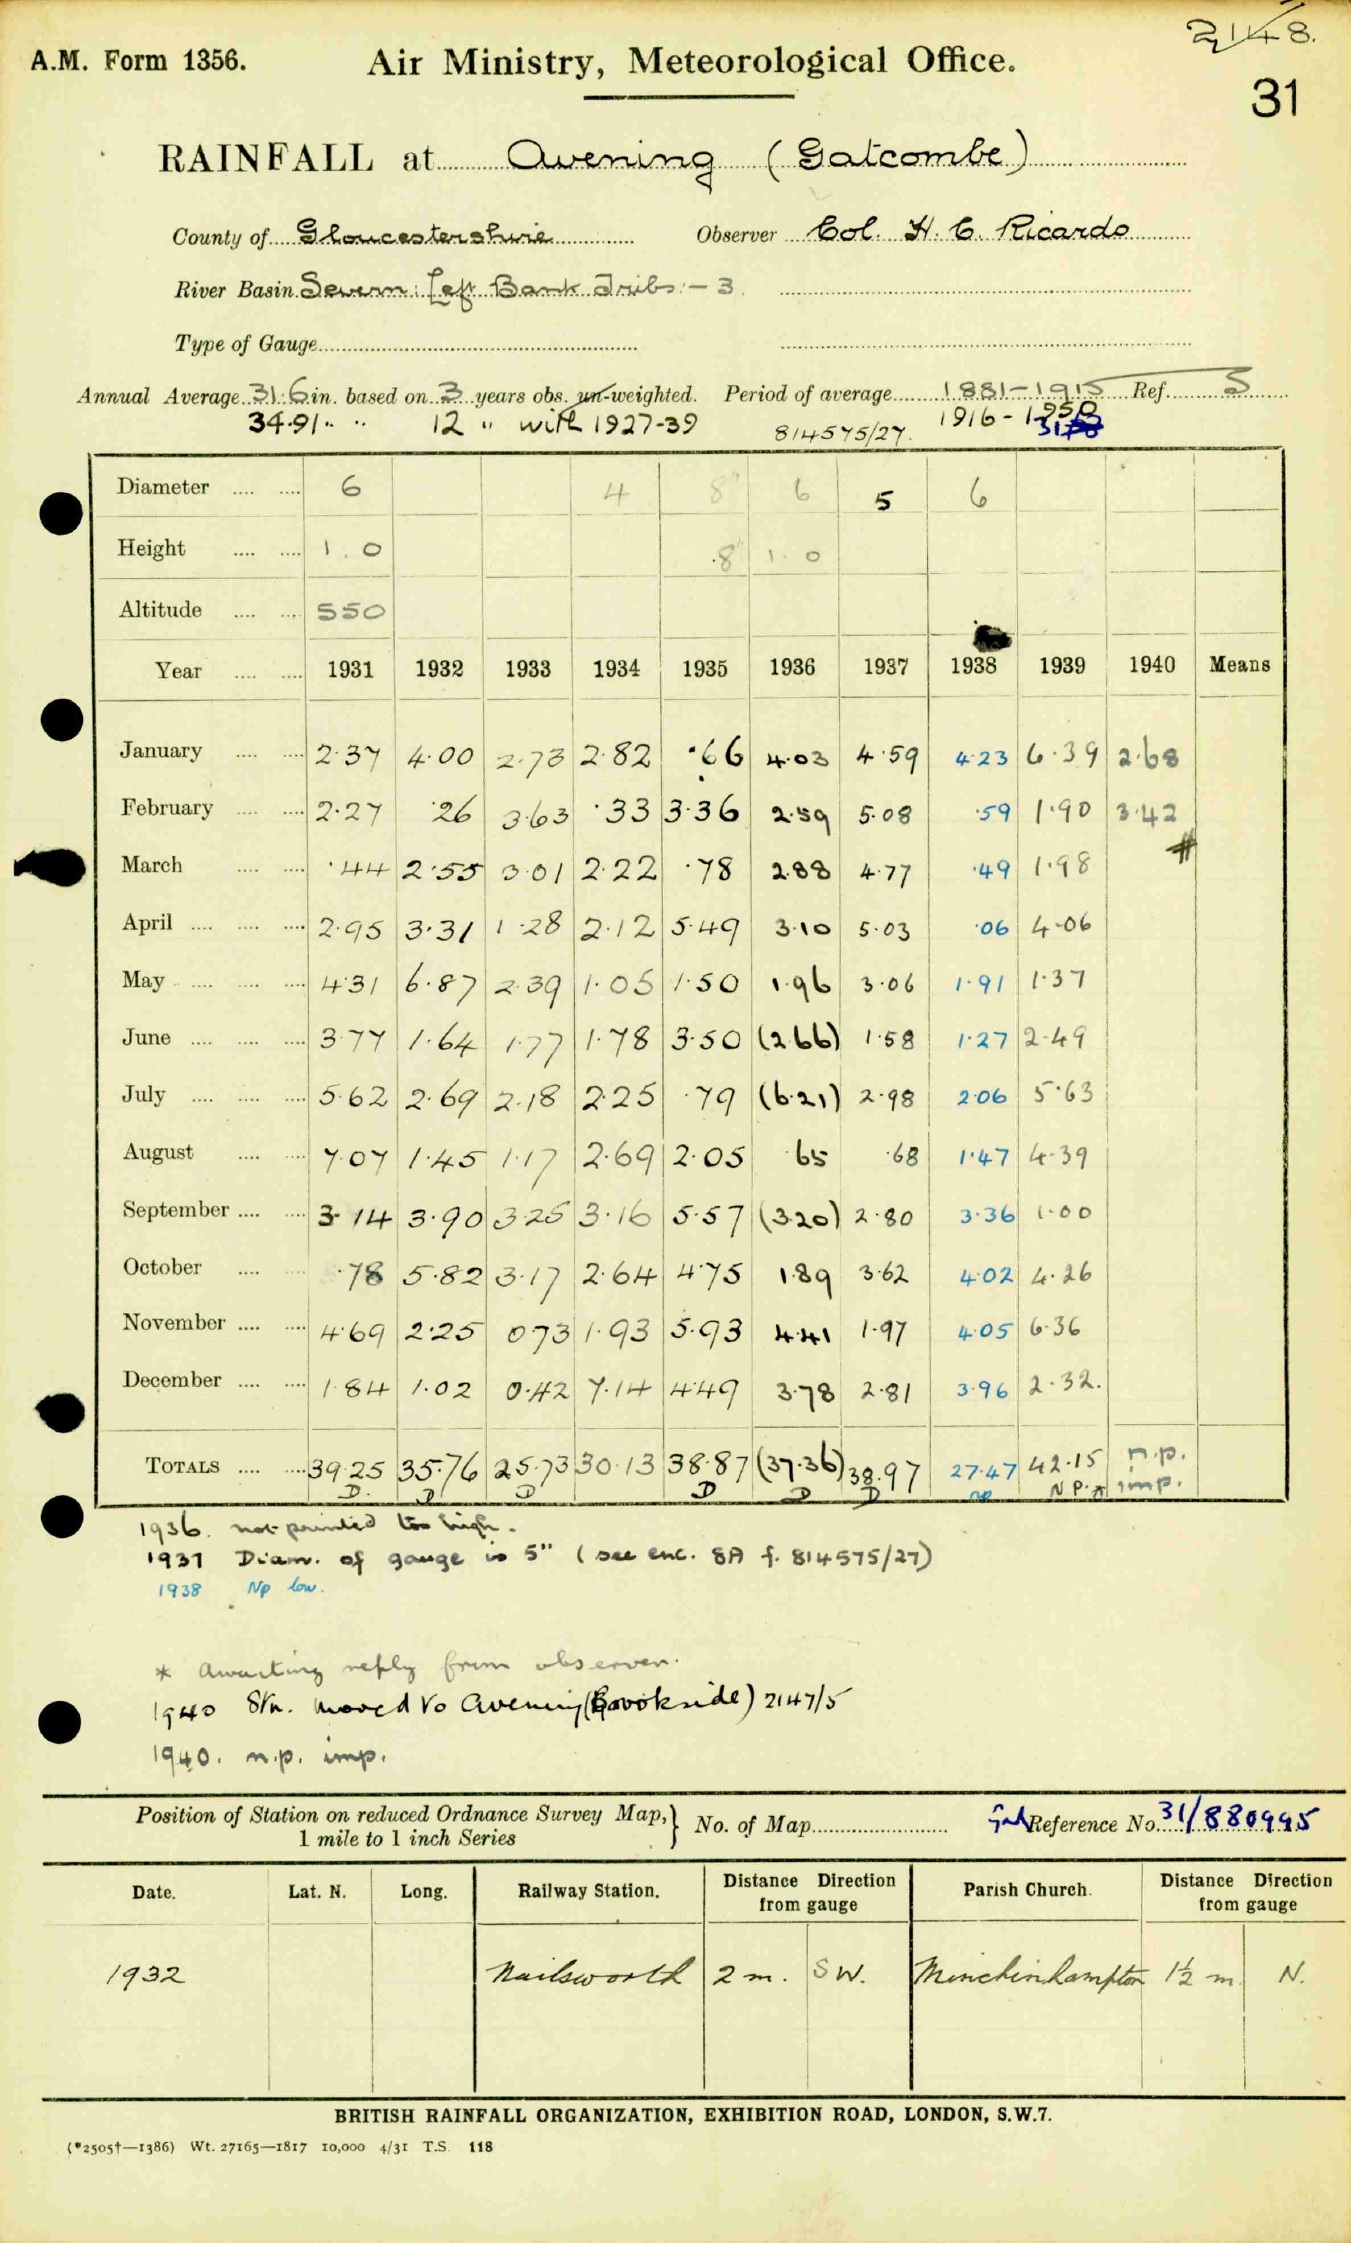 2148.
A.M. Form 1356. Air Ministry, Meteorological Office.
31
RAINFALL at Avening (Gatcombe)
County of Gloucestershire Observer Col. H. C. Ricardo
River Basin Severn: Left Bank Tribs - 3
Type of Gauge
Annual Average 31.6 in. based on 3 years obs. un-weighted. Period of average 1881-1915 Ref. S
34.91 " " 12 " with 1927-39 814575/27. 1916-1950
Diameter 6 4 8" 6 5 6
Height 1.0 .8" 1.0
Altitude 550
Year 1931 1932 1933 1934 1935 1936 1937 1938 1939 1940 Means
January 2.37 4.00 2.73 2.82 .66 4.03 4.59 4.23 6.39 2.68
February 2.27 .26 3.63 .33 3.36 2.59 5.08 .59 1.90 3.42
March .44 2.55 3.01 2.22 .78 2.88 4.77 .49 1.98 #
April 2.95 3.31 1.28 2.12 5.49 3.10 5.03 .06 4.06
May 4.31 6.87 2.39 1.05 1.50 1.96 3.06 1.91 1.37
June 3.77 1.64 1.77 1.78 3.50 (2.66) 1.58 1.27 2.49
July 5.62 2.69 2.18 2.25 .79 (6.21) 2.98 2.06 5.63
August 7.07 1.45 1.17 2.69 2.05 .65 .68 1.47 4.39
September 3.14 3.90 3.25 3.16 5.57 (3.20) 2.80 3.36 1.00
October .78 5.82 3.17 2.64 4.75 1.89 3.62 4.02 4.26
November 4.69 2.25 0.73 1.93 5.93 4.41 1.97 4.05 6.36
December 1.84 1.02 0.42 7.14 4.49 3.78 2.81 3.96 2.32.
TOTALS 39.25 35.76 25.73 30.13 38.87 (37.36) 38.97 27.47 42.15 n.p.
D. D D D D D np N P. * imp.
1936. not printed too high.
1937 Diam. of gauge is 5" (see enc. 8A f. 814575/27)
1938 Np low.
* Awaiting reply from observer.
1940 Stn. moved to Avening (Brookside) 2147/5
1940. n.p. imp.
Position of Station on reduced Ordnance Survey Map, } No. of Map Grid Reference No. 31/880995
1 mile to 1 inch Series
Date. Lat. N. Long. Railway Station. Distance Direction from gauge Parish Church. Distance Direction from gauge
1932 Nailsworth 2 m. SW. Minchinhampton 1½ m. N.
BRITISH RAINFALL ORGANIZATION, EXHIBITION ROAD, LONDON, S.W.7.
(*2505†—1386) Wt. 27165—1817 10,000 4/31 T.S. 118